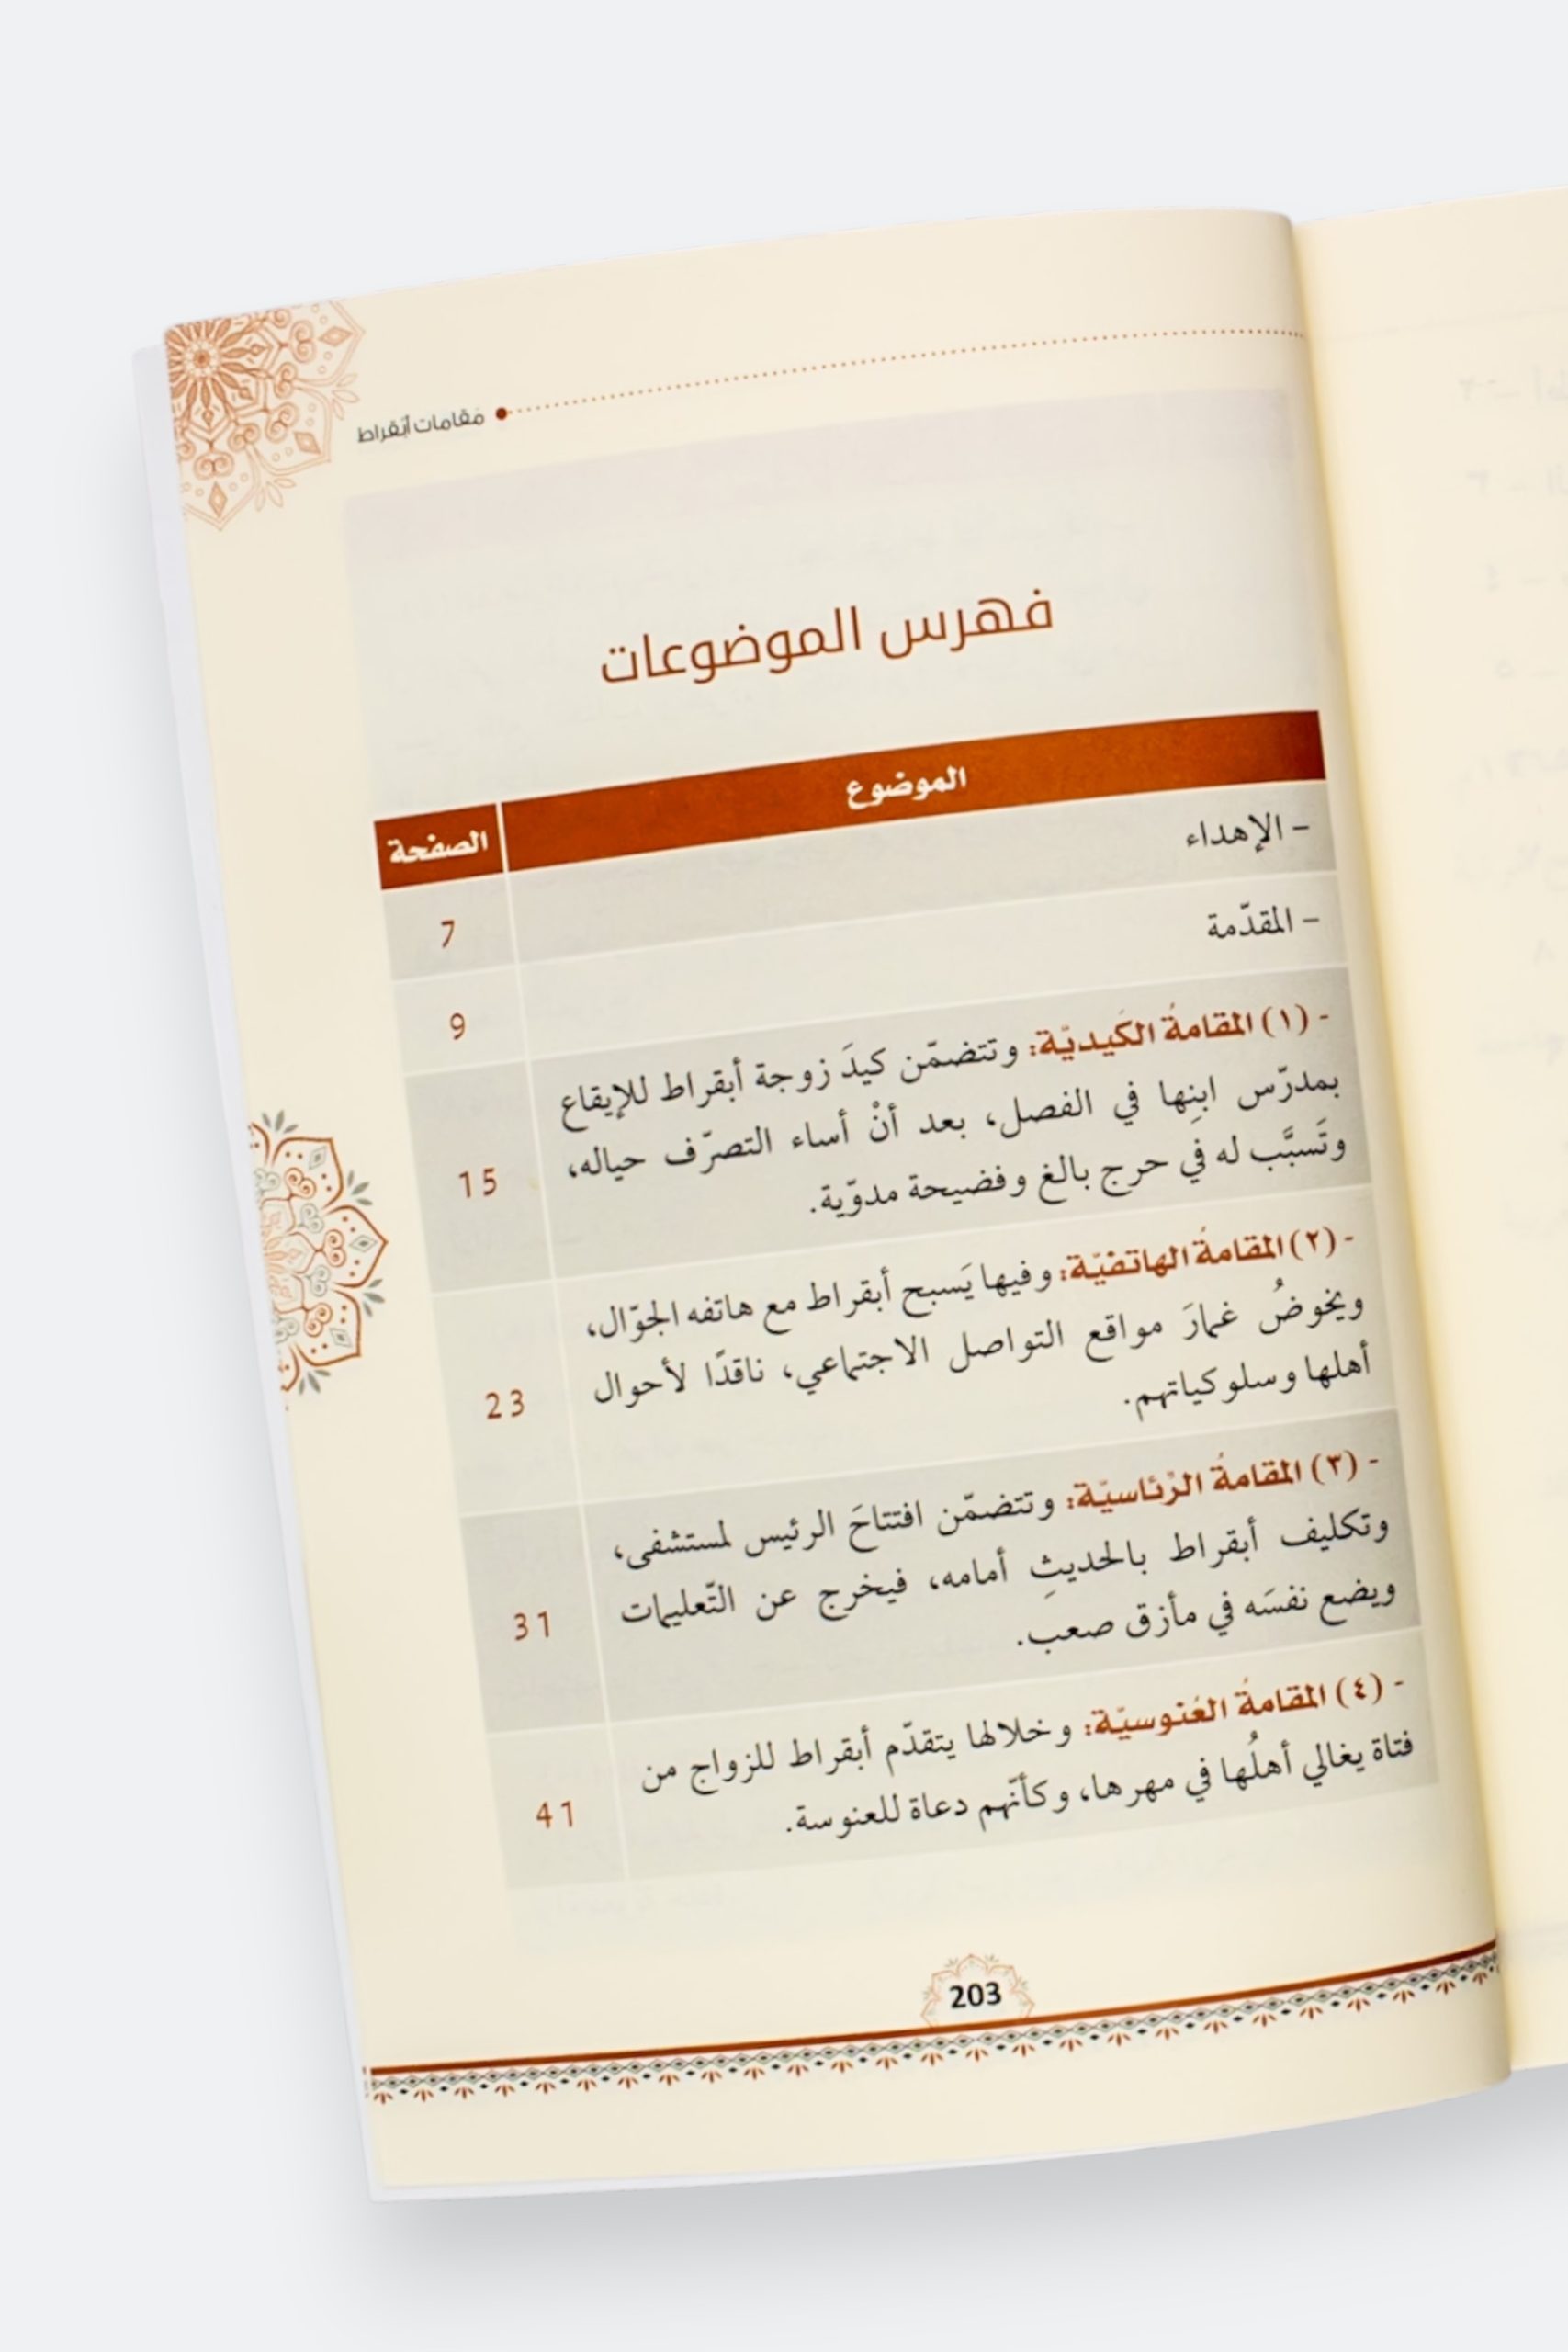 مَقامات أبقراط
فهرس الموضوعات
الموضوع
الصفحة
– الإهداء
7
– المقدّمة
9
- (١) المقامةُ الكَيديّة: وتتضمّن كيدَ زوجة أبقراط للإيقاع
بمدرّس ابنِها في الفصل، بعد أنْ أساء التصرّف حياله،
وتَسبَّب له في حرج بالغ وفضيحة مدوّية.
15
- (٢) المقامةُ الهاتفيّة: وفيها يَسبح أبقراط مع هاتفه الجوّال،
ويخوضُ غمارَ مواقع التواصل الاجتماعي، ناقدًا لأحوال
أهلها وسلوكياتهم.
23
- (٣) المقامةُ الرّئاسيّة: وتتضمّن افتتاحَ الرئيس لمستشفى،
وتكليف أبقراط بالحديثِ أمامه، فيخرج عن التّعليمات
ويضع نفسَه في مأزق صعب.
31
- (٤) المقامةُ العُنوسيّة: وخلالها يتقدّم أبقراط للزواج من
فتاة يغالي أهلُها في مهرها، وكأنّهم دعاة للعنوسة.
41
203